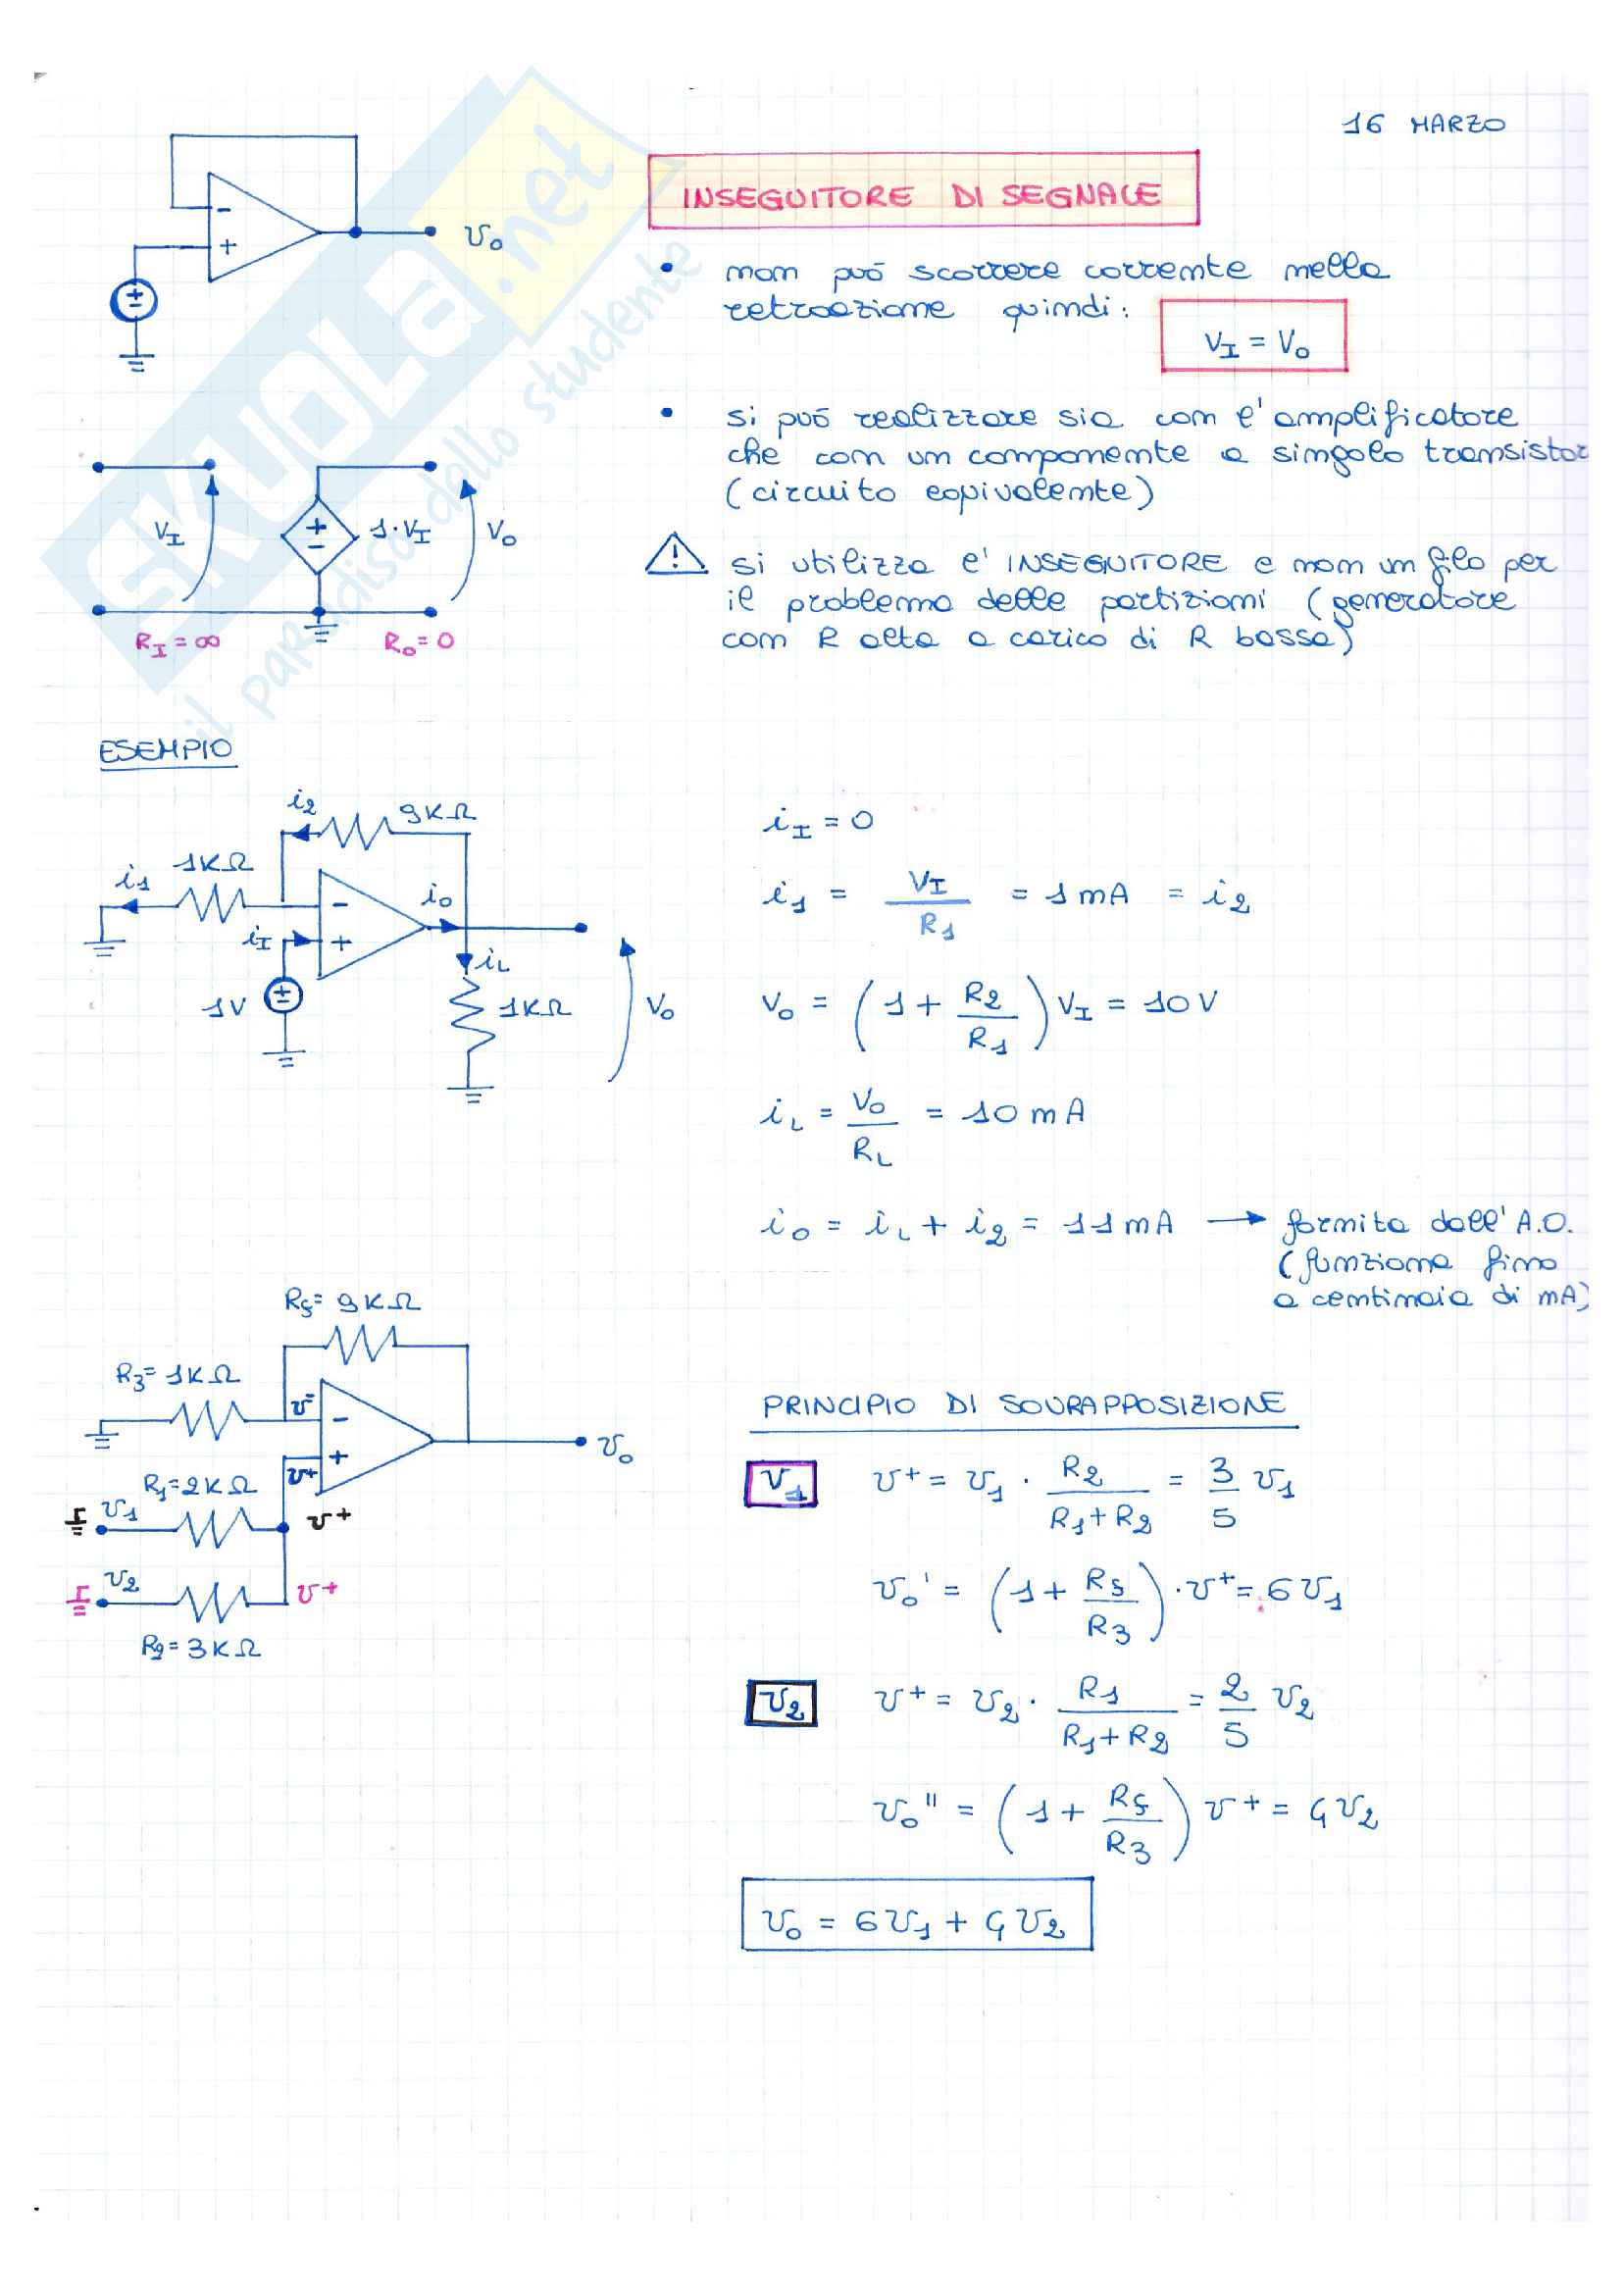 16 MARZO
INSEGUITORE DI SEGNALE
- + v₀
• non può scorrere corrente nella
retroazione quindi:
V_I = V₀
• si può realizzare sia con l'amplificatore
che con un componente a singolo transistor
(circuito equivalente)
V_I 1·V_I V₀
R_I = ∞ R₀ = 0
⚠ si utilizza l'INSEGUITORE e non un filo per
il problema delle partizioni (generatore
con R alta a carico di R bassa)
SKUOLA.net
il paradiso dello studente
ESEMPIO
i₂ 9KΩ
i₁ 1KΩ
i_I - + i₀
i_L
1V 1KΩ V₀
i_I = 0
i₁ = V_I / R₁ = 1 mA = i₂
V₀ = (1 + R₂/R₁) V_I = 10 V
i_L = V₀ / R_L = 10 mA
i₀ = i_L + i₂ = 11 mA → fornita dall'A.O.
(funziona fino
a centinaia di mA)
R_f = 9KΩ
R₃ = 1KΩ
v⁻ -
v⁺ + v₀
R₁ = 2KΩ
v₁ v⁺
v₂ v⁺
R₂ = 3KΩ
PRINCIPIO DI SOVRAPPOSIZIONE
V₁ v⁺ = v₁ · R₂ / (R₁+R₂) = 3/5 v₁
v₀' = (1 + R_f/R₃) · v⁺ = 6 v₁
v₂ v⁺ = v₂ · R₁ / (R₁+R₂) = 2/5 v₂
v₀'' = (1 + R_f/R₃) v⁺ = 4 v₂
v₀ = 6 v₁ + 4 v₂